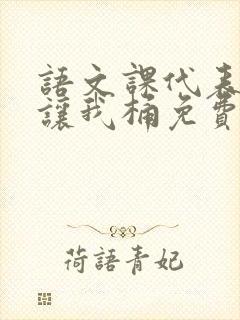 語文課代表
讓我桶免費
荷語青妃